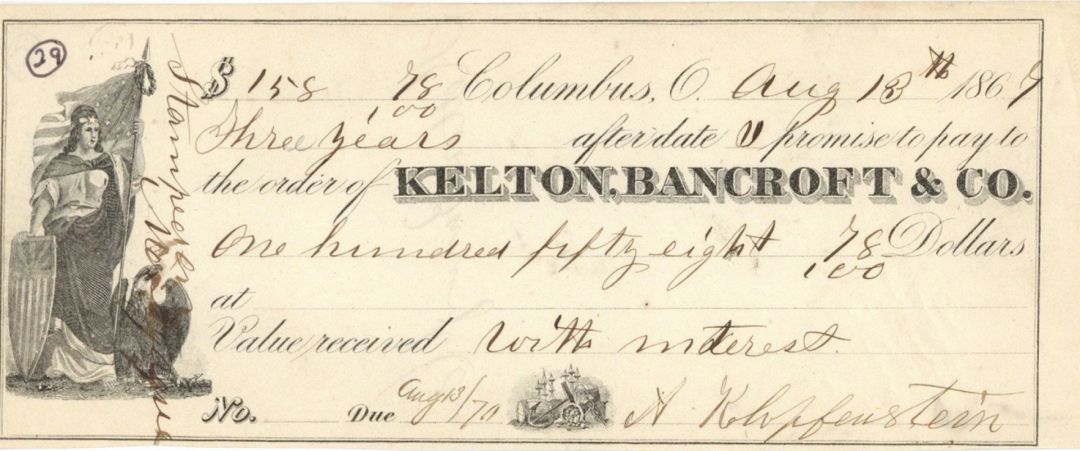 29
$ 158 78/100 Columbus, O. Aug 13th 1869
Three years after date I promise to pay to
the order of KELTON, BANCROFT & CO.
One hundred fifty eight 78/100 Dollars
at
Value received with interest.
No. Due Aug 13/70 A Klopfenstein
Stamps on